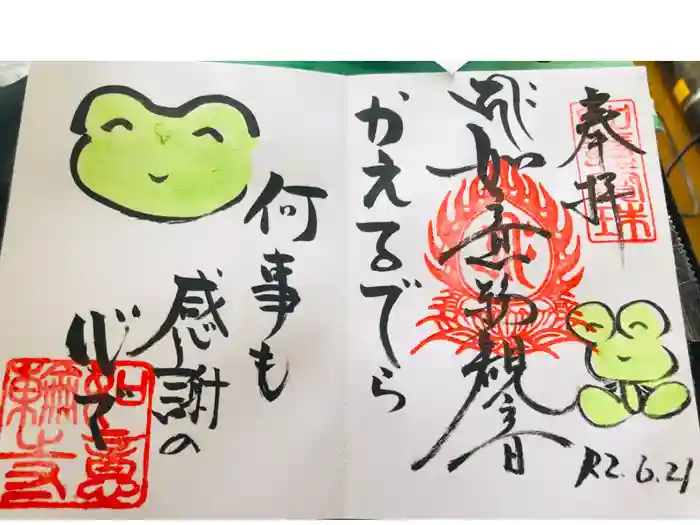 奉拝
如意輪観音
かえるでら
R2.6.21
何事も
感謝の
心で
如意
輪寺